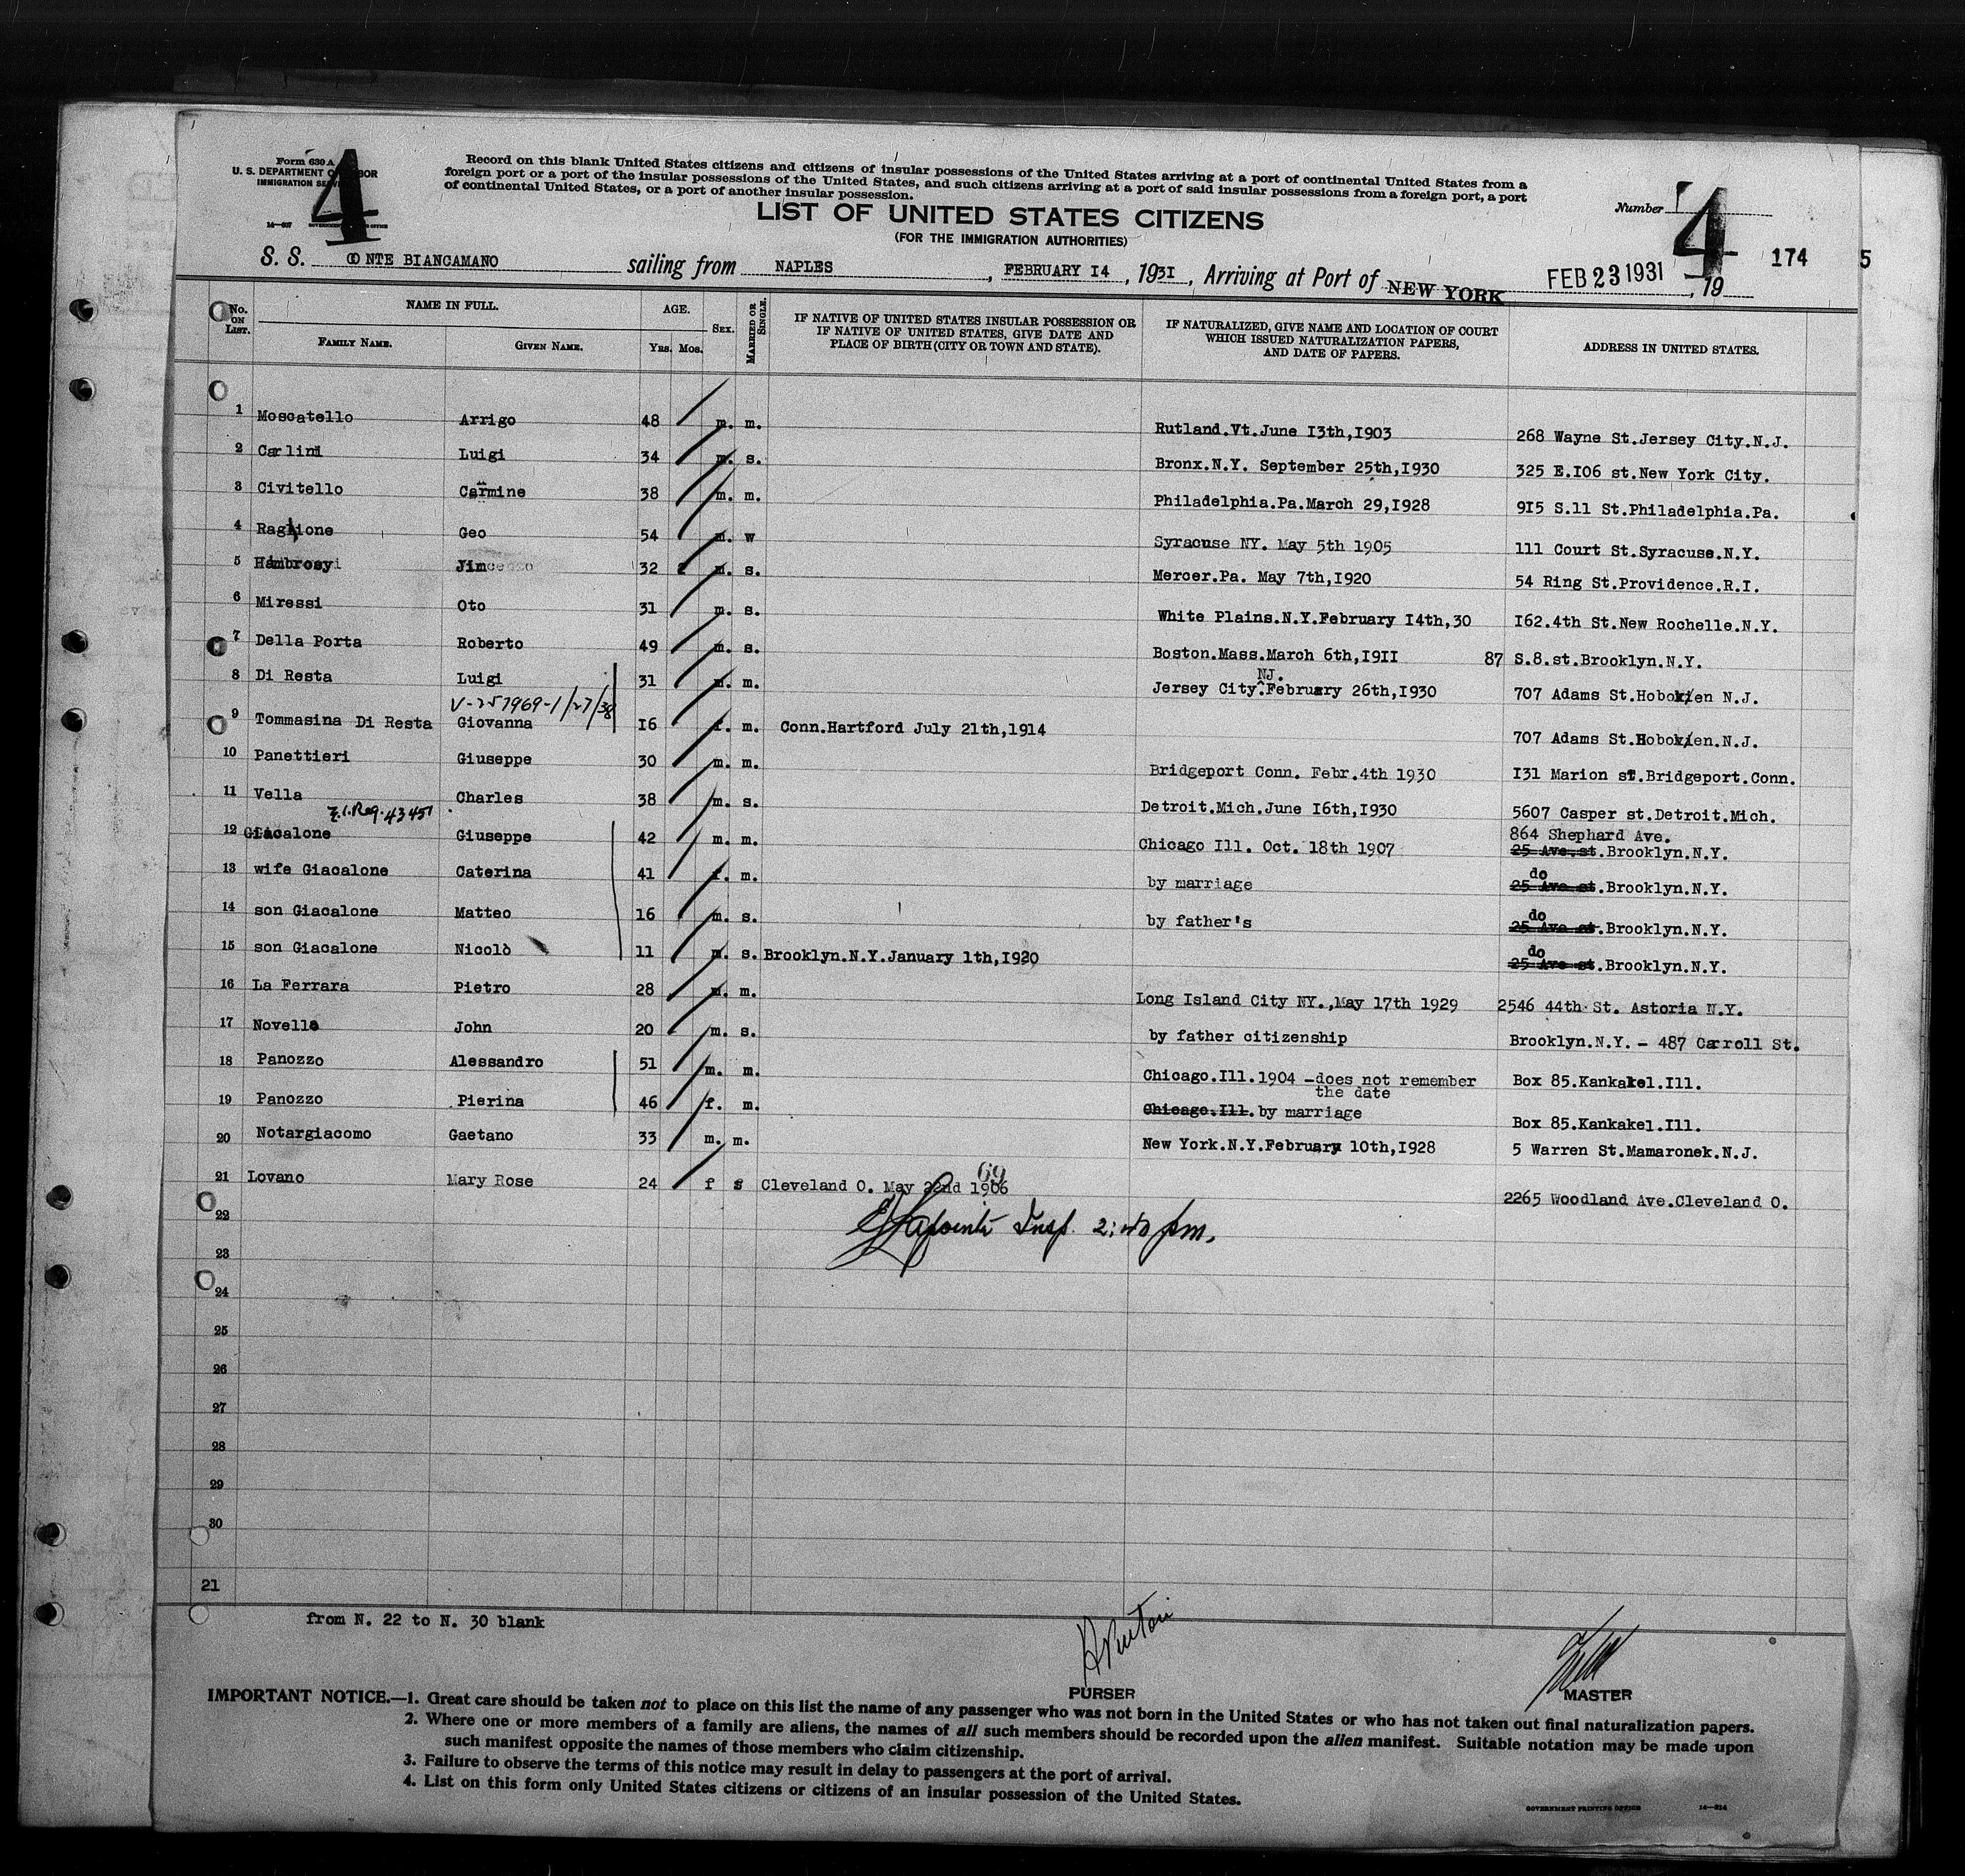 Form 630 A
U. S. DEPARTMENT OF LABOR
IMMIGRATION SERVICE
14—
4
Record on this blank United States citizens and citizens of insular possessions of the United States arriving at a port of continental United States from a
foreign port or a port of the insular possessions of the United States, and such citizens arriving at a port of said insular possessions from a foreign port, a port
of continental United States, or a port of another insular possession.
LIST OF UNITED STATES CITIZENS
(FOR THE IMMIGRATION AUTHORITIES)
Number 4 174 5
S. S. CONTE BIANCAMANO sailing from NAPLES, FEBRUARY I4, 1931, Arriving at Port of NEW YORK FEB 23 1931, 19
No. ON LIST. NAME IN FULL. FAMILY NAME. GIVEN NAME. AGE. YRS. MOS. SEX. MARRIED OR SINGLE. IF NATIVE OF UNITED STATES INSULAR POSSESSION OR IF NATIVE OF UNITED STATES, GIVE DATE AND PLACE OF BIRTH (CITY OR TOWN AND STATE). IF NATURALIZED, GIVE NAME AND LOCATION OF COURT WHICH ISSUED NATURALIZATION PAPERS, AND DATE OF PAPERS. ADDRESS IN UNITED STATES.
1 Moscatello Arrigo 48 m. m. Rutland.Vt.June I3th,I903 268 Wayne St.Jersey City.N.J.
2 Carlini Luigi 34 m. s. Bronx.N.Y. September 25th,I930 325 E.I06 st.New York City.
3 Civitello Carmine 38 m. m. Philadelphia.Pa.March 29,I928 9I5 S.11 St.Philadelphia.Pa.
4 Raglione Geo 54 m. w Syracuse NY. May 5th 1905 111 Court St.Syracuse.N.Y.
5 Hambrosy Jim 32 m. s. Mercer.Pa. May 7th,I920 54 Ring St.Providence.R.I.
6 Miressi Oto 31 m. s. White Plains.N.Y.February I4th,30 I62.4th St.New Rochelle.N.Y.
7 Della Porta Roberto 49 m. s. Boston.Mass.March 6th,I9II 87 S.8.st.Brooklyn.N.Y.
8 Di Resta Luigi 31 m. m. Jersey City NJ. February 26th,I930 707 Adams St.Hoboken N.J.
V-257969-1/27/38
9 Tommasina Di Resta Giovanna I6 f. m. Conn.Hartford July 21th,1914 707 Adams St.Hoboken.N.J.
10 Panettieri Giuseppe 30 m. m. Bridgeport Conn. Febr.4th 1930 I3I Marion st.Bridgeport.Conn.
11 Vella Charles 38 m. s. Detroit.Mich.June I6th,I930 5607 Casper st.Detroit.Mich.
Reg. 43451
12 Giacalone Giuseppe 42 m. m. Chicago Ill. Oct. 18th 1907 864 Shephard Ave.
25 Ave.st.Brooklyn.N.Y.
13 wife Giacalone Caterina 41 f. m. by marriage do
25 Ave st.Brooklyn.N.Y.
14 son Giacalone Matteo 16 m. s. by father's do
25 Ave st.Brooklyn.N.Y.
15 son Giacalone Nicolò 11 m. s. Brooklyn.N.Y.January 1th,I920 do
25 Ave st.Brooklyn.N.Y.
16 La Ferrara Pietro 28 m. m. Long Island City NY.,May 17th 1929 2546 44th St. Astoria N.Y.
17 Novello John 20 m. s. by father citizenship Brooklyn.N.Y. - 487 Carroll St.
18 Panozzo Alessandro 51 m. m. Chicago.Ill.1904 -does not remember
the date Box 85.Kankakel.Ill.
19 Panozzo Pierina 46 f. m. Chicago.Ill. by marriage Box 85.Kankakel.Ill.
20 Notargiacomo Gaetano 33 m. m. New York.N.Y.February 10th,I928 5 Warren St.Mamaronek.N.J.
21 Lovano Mary Rose 24 f s Cleveland O. May 22nd 1906 2265 Woodland Ave.Cleveland O.
69
Insp. 2:40 pm.
22
23
24
25
26
27
28
29
30
21
from N. 22 to N. 30 blank
PURSER
MASTER
IMPORTANT NOTICE.—1. Great care should be taken not to place on this list the name of any passenger who was not born in the United States or who has not taken out final naturalization papers.
2. Where one or more members of a family are aliens, the names of all such members should be recorded upon the alien manifest. Suitable notation may be made upon
such manifest opposite the names of those members who claim citizenship.
3. Failure to observe the terms of this notice may result in delay to passengers at the port of arrival.
4. List on this form only United States citizens or citizens of an insular possession of the United States.
GOVERNMENT PRINTING OFFICE 14—214